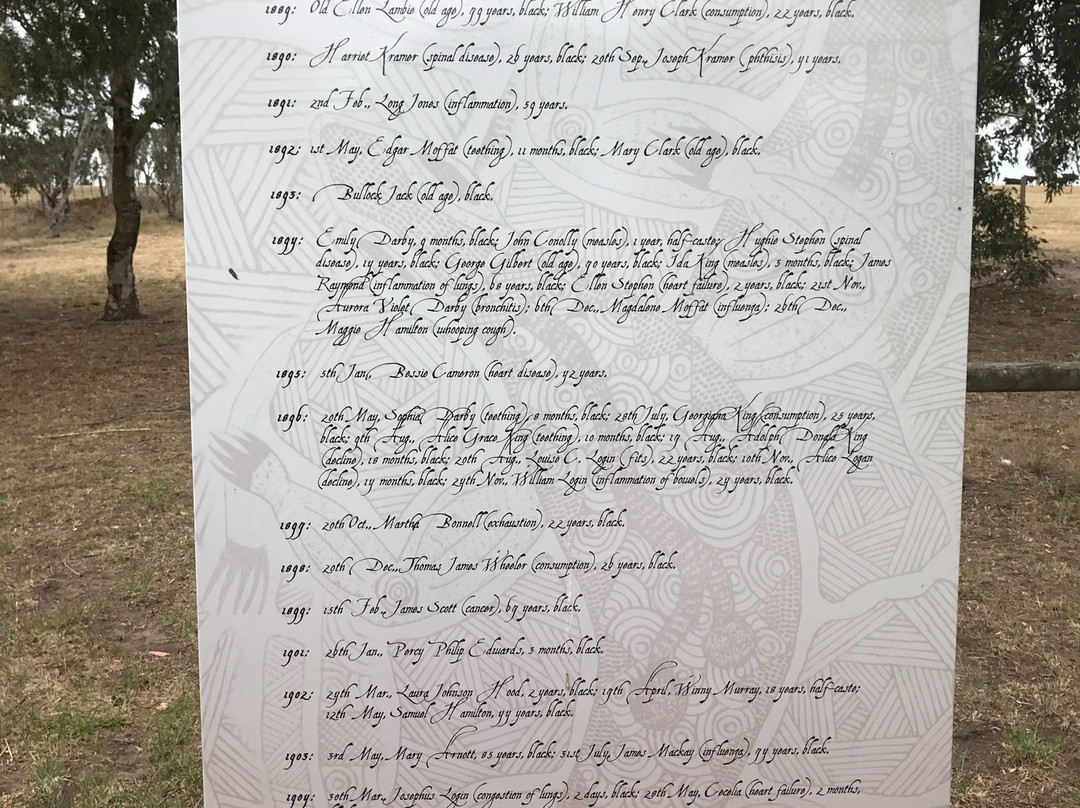 1889: Old Ellen Lambie (old age), 99 years, black; William Henry Clark (consumption), 22 years, black.
1890: Harriet Kramer (spinal disease), 26 years, black; 20th Sep., Joseph Kramer (phthisis), 41 years.
1891: 2nd Feb., Long Jones (inflammation), 59 years.
1892: 1st May, Edgar Moffat (teething), 11 months, black; Mary Clark (old age), black.
1893: Bullock Jack (old age), black.
1894: Emily Darby, 9 months, black; John Conolly (measles), 1 year, half-caste; Hughie Stephen (spinal
disease), 14 years, black; George Gilbert (old age), 90 years, black; Ida King (measles), 3 months, black; James
Raymond (inflammation of lungs), 68 years, black; Ellen Stephen (heart failure), 2 years, black; 21st Nov.,
Aurora Violet Darby (bronchitis); 6th Dec., Magdalene Moffat (influenza); 26th Dec.,
Maggie Hamilton (whooping cough).
1895: 5th Jan., Bessie Cameron (heart disease), 42 years.
1896: 20th May, Sophia Darby (teething), 8 months, black; 28th July, Georgina King (consumption), 25 years,
black; 9th Aug., Alice Grace King (teething), 10 months, black; 19 Aug., Adolph Donald King
(decline), 18 months, black; 20th Aug., Louise C. Login (fits), 22 years, black; 10th Nov., Alice Logan
(decline), 14 months, black; 24th Nov., William Login (inflammation of bowels), 24 years, black.
1897: 20th Oct., Martha Bonnell (exhaustion), 22 years, black.
1898: 20th Dec., Thomas James Wheeler (consumption), 26 years, black.
1899: 15th Feb., James Scott (cancer), 69 years, black.
1901: 26th Jan., Percy Philip Edwards, 3 months, black.
1902: 24th Mar., Laura Johnson Hood, 2 years, black; 19th April, Winny Murray, 18 years, half-caste;
12th May, Samuel Hamilton, 44 years, black.
1903: 3rd May, Mary Arnott, 85 years, black; 31st July, James Mackay (influenza), 44 years, black.
1904: 30th Mar., Josephus Login (congestion of lungs), 2 days, black; 28th May, Cecelia (heart failure), 2 months,